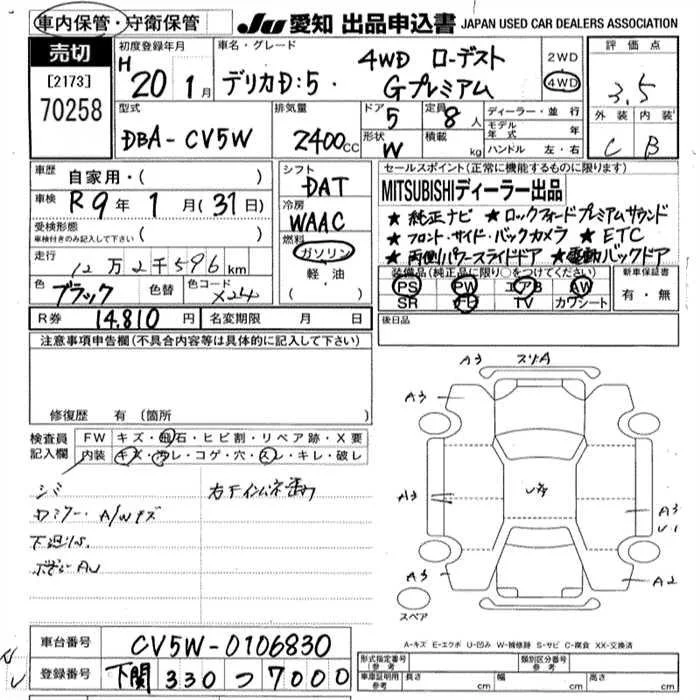 車内保管・守衛保管
JU 愛知 出品申込書 JAPAN USED CAR DEALERS ASSOCIATION
売切
[2173]
70258
初度登録年月
H 20 1月
車名・グレード
デリカD:5・
4WD ローデスト
Gプレミアム
2WD
4WD
評価点
3.5
外装 内装
C B
型式
DBA-CV5W
排気量
2400cc
ドア
5
形状
W
定員
8人
積載
kg
ディーラー・並行
モデル年式 年
ハンドル 左・右
車歴
自家用・( )
車検
R9年 1月(31日)
受検形態
車検付きのみ記入して下さい ( )
走行
12万2千596km
色
ブラック
色替
色コード
X24
シフト
DAT
冷房
WAAC
燃料
ガソリン
軽油
( )
セールスポイント(正常に機能するものに限ります)
MITSUBISHIディーラー出品
★純正ナビ ★ロックフォードプレミアムサウンド
★フロント・サイド・バックカメラ ★ETC
★両側パワースライドドア ★電動バックドア
装備品(純正品に限り○をつけてください)
PS PW エアB AW
SR TV カワシート
新車保証書
有・無
R券 14,810円
名変期限 月 日
後日品
注意事項申告欄(不具合内容等は具体的に記入して下さい)
修復歴 有(箇所 )
検査員
記入欄
FW キズ・飛石・ヒビ割・リペア跡・X要
内装 キズ・汚レ・コゲ・穴・スレ・キレ・破レ
シミ
A/Wキズ
A3
A3
A3
A3
A3
A2
スペア
A-キズ E-エクボ U-凹み W-補修跡 S-サビ C-腐食 XX-交換済
車台番号
CV5W-0106830
登録番号
下関 330 つ 7000
形式指定番号
(参考)
類別区分番号
(参考)
車庫証明用
(参考)
長さ cm
幅 cm
高さ cm